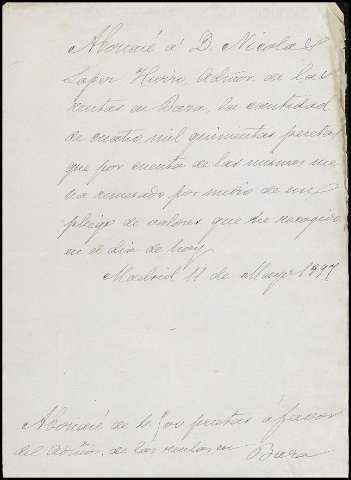 Abonaré á D. Nicolas
Lopez Hierro, Admor. de las
rentas en Baza, la cantidad
de cuatro mil quinientas pesetas
que por cuenta de las mismas me
ha remesado por medio de un
pliego de valores que he recogido
en el dia de hoy
Madrid 11 de Mayo 1897
Abonaré de 4.500 pesetas á favor
del Admor. de las rentas en Baza